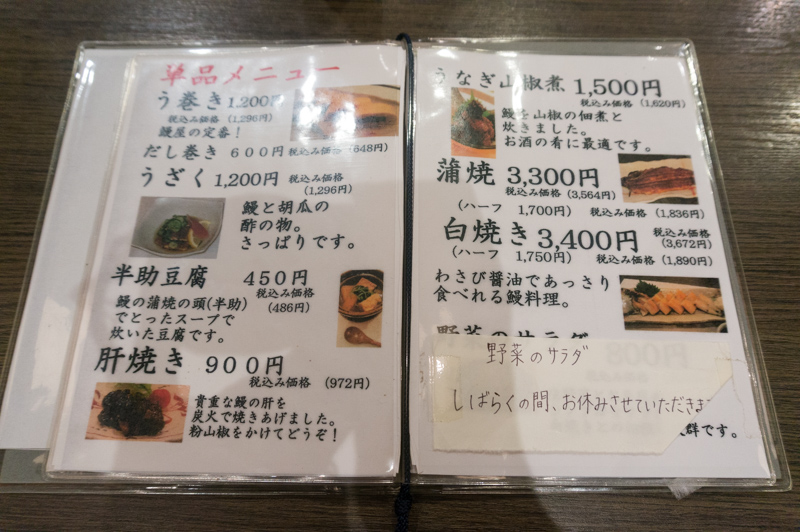 単品メニュー
う巻き 1,200円
税込み価格 (1,296円)
鰻屋の定番！
だし巻き 600円 税込み価格 (648円)
うざく 1,200円 税込み価格
(1,296円)
鰻と胡瓜の
酢の物。
さっぱりです。
半助豆腐 450円
税込み価格
(486円)
鰻の蒲焼の頭(半助)
でとったスープで
炊いた豆腐です。
肝焼き 900円
税込み価格 (972円)
貴重な鰻の肝を
炭火で焼きあげました。
粉山椒をかけてどうぞ！
うなぎ山椒煮 1,500円
税込み価格 (1,620円)
鰻を山椒の佃煮と
炊きました。
お酒の肴に最適です。
蒲焼 3,300円
税込み価格 (3,564円)
(ハーフ 1,700円) 税込み価格 (1,836円)
白焼き 3,400円 税込み価格
(3,672円)
(ハーフ 1,750円) 税込み価格 (1,890円)
わさび醤油であっさり
食べれる鰻料理。
野菜のサラダ
野菜のサラダ
しばらくの間、お休みさせていただきま
群です。